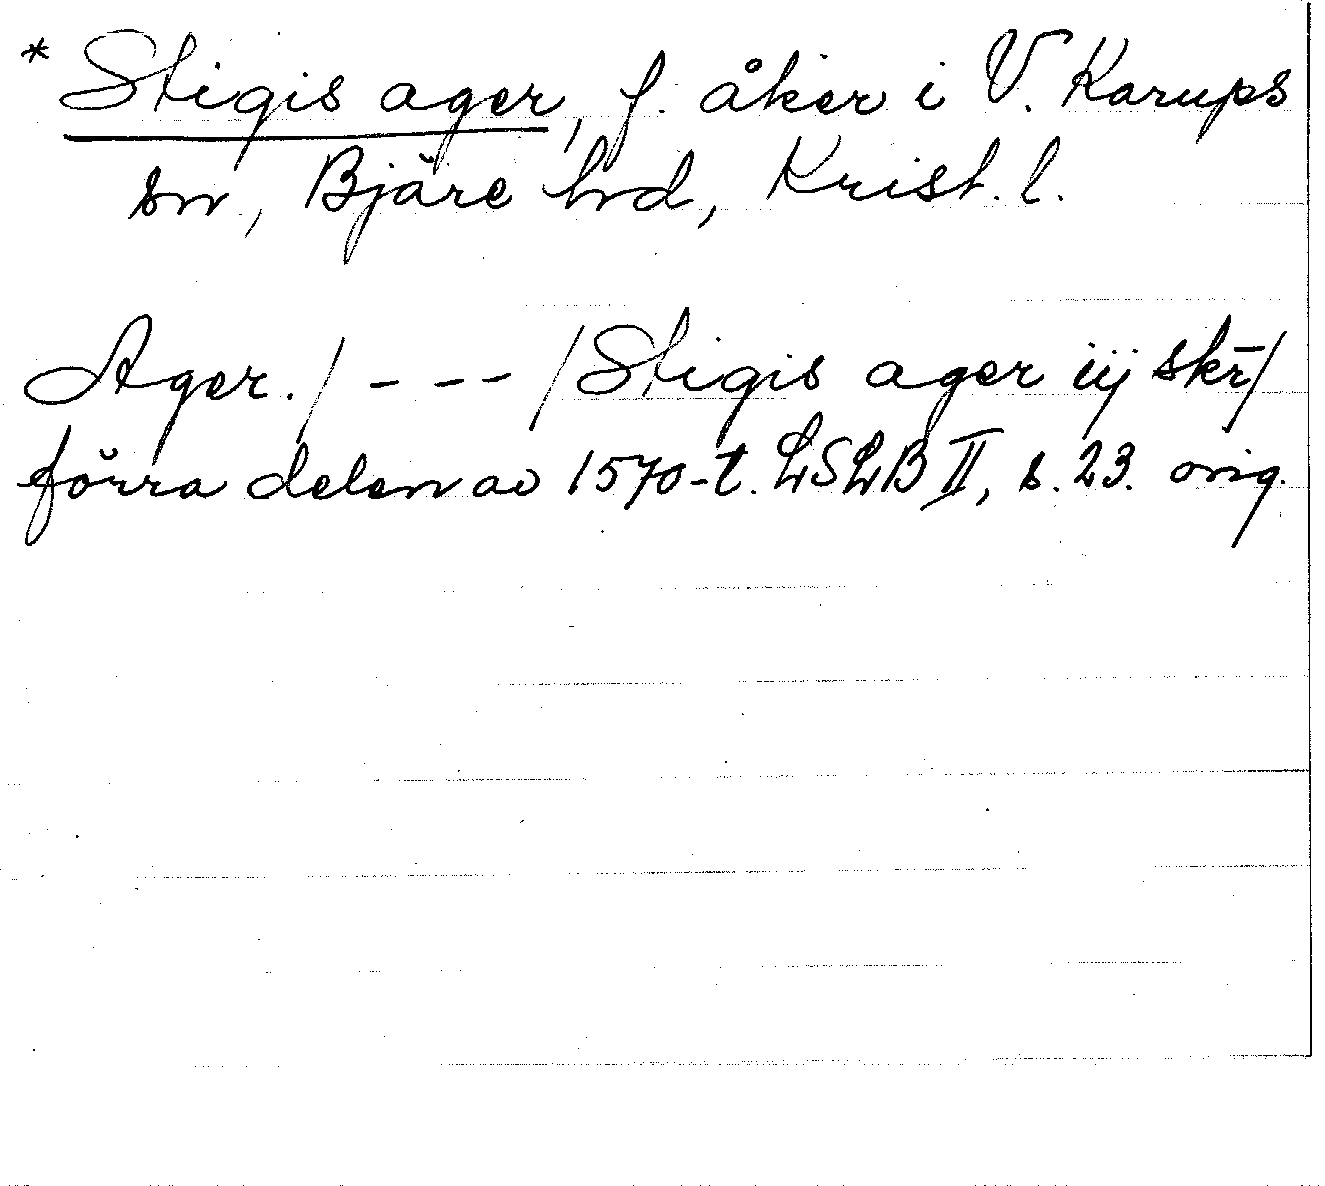 * Stigis ager, f. åker i V. Karups
sn, Bjäre hd, Krist. l.
Ager. / - - - / Stigis ager iij skr̄ /
förra delen av 1570-t. LSLB II, s. 23. orig.